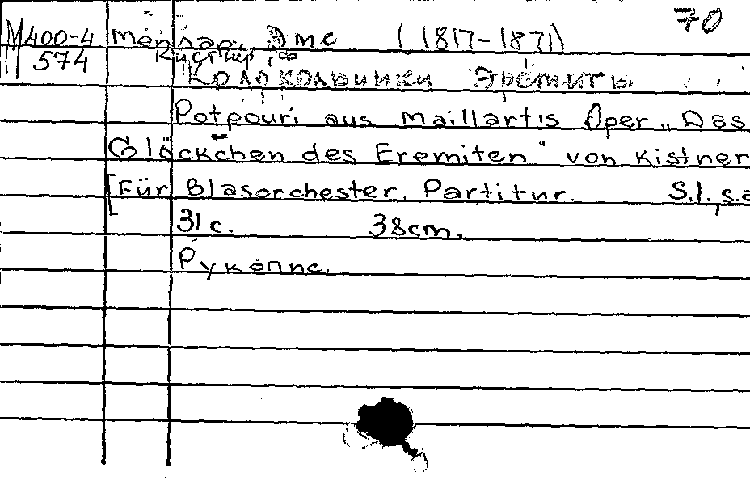 70
М400-4 Меллар, Эме (1817-1871)
574 Кистнер,
Колокольчики Эремиты
Potpouri aus Maillartis Oper „Das
Glöckchen des Eremiten" von Kistner
[Für Blasorchester. Partitur. S.l., s.a
31 с. 38cm.
Рукопис.